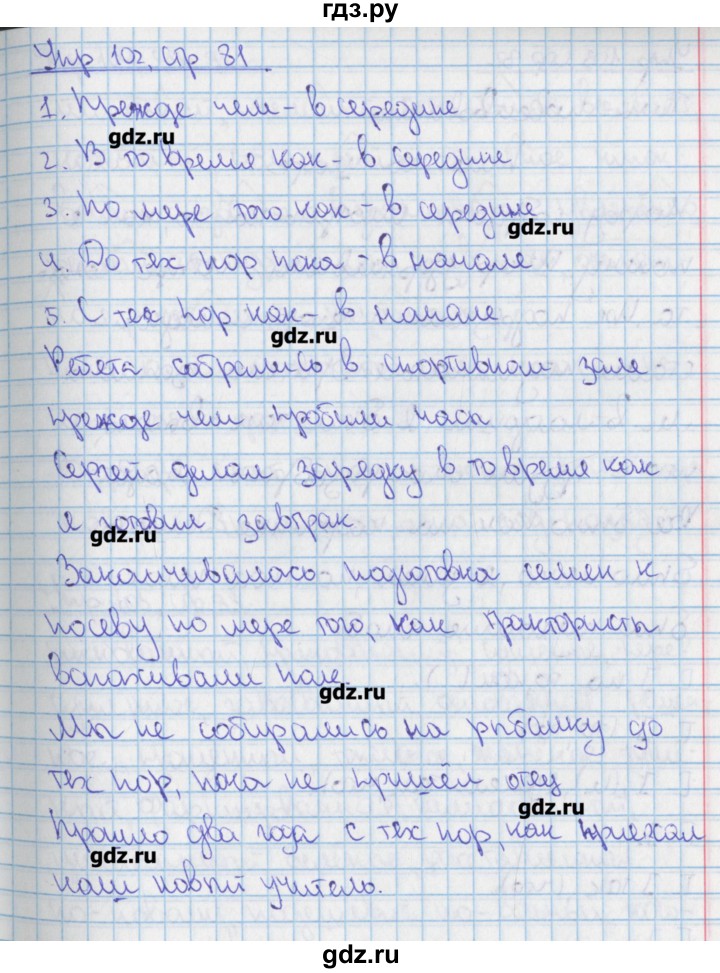 гдз.ру
Упр 102, стр 81.
1. Прежде чем - в середине
gdz.ru
2. В то время как - в середине
3. По мере того как - в середине
gdz.ru
4. До тех пор пока - в начале
5. С тех пор как - в начале
gdz.ru
Ребята собрались в спортивном зале
прежде чем пробили часы
Сергей делал зарядку в то время как
я готовил завтрак
gdz.ru
Заканчивалась подготовка семян к
посеву по мере того, как трактористы
вспахивали поле.
gdz.ru
Мы не собирались на рыбалку до
тех пор, пока не пришёл отец
gdz.ru
Прошло два года с тех пор, как приехал
gdz.ru
наш новый учитель.
gdz.ru